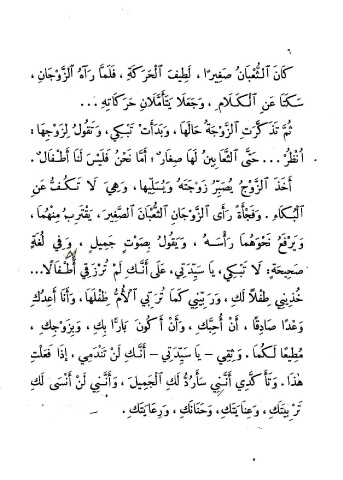 ٦
كَانَ الثُّعْبَانُ صَغِيرًا ، لَطِيفَ الْحَرَكَةِ ، فَلَمَّا رَآهُ الزَّوْجَانِ ،
سَكَتَا عَنِ الْكَلَامِ ، وَجَعَلَا يَتَأَمَّلَانِ حَرَكَاتِهِ ...
ثُمَّ تَذَكَّرَتِ الزَّوْجَةُ حَالَهَا ، وَبَدَأَتْ تَبْكِي ، وَتَقُولُ لِزَوْجِهَا :
انْظُرْ ... حَتَّى الثَّعَابِينُ لَهَا صِغَارٌ ؛ أَمَّا نَحْنُ فَلَيْسَ لَنَا أَطْفَالٌ .
أَخَذَ الزَّوْجُ يُصَبِّرُ زَوْجَتَهُ وَيُسَلِّيهَا ، وَهِيَ لَا تَكُفُّ عَنِ
الْبُكَاءِ . وَفَجْأَةً رَأَى الزَّوْجَانِ الثُّعْبَانَ الصَّغِيرَ ، يَقْتَرِبُ مِنْهُمَا ،
وَيَرْفَعُ نَحْوَهُمَا رَأْسَهُ ، وَيَقُولُ بِصَوْتٍ جَمِيلٍ ، وَفِي لُغَةٍ
صَحِيحَةٍ : لَا تَبْكِي ، يَا سَيِّدَتِي ، عَلَى أَنَّكِ لَمْ تُرْزَقِي أَطْفَالًا ...
خُذِينِي طِفْلًا لَكِ ، وَرَبِّينِي كَمَا تُرَبِّي الْأُمُّ طِفْلَهَا ، وَأَنَا أَعِدُكِ
وَعْدًا صَادِقًا ، أَنْ أُحِبَّكِ ، وَأَنْ أَكُونَ بَارًّا بِكِ ، وَبِزَوْجِكِ ،
مُطِيعًا لَكُمَا . وَثِقِي – يَا سَيِّدَتِي – أَنَّكِ لَنْ تَنْدَمِي ، إِذَا فَعَلْتِ
هٰذَا . وَتَأَكَّدِي أَنَّنِي سَأَرُدُّ لَكِ الْجَمِيلَ ، وَأَنَّنِي لَنْ أَنْسَى لَكِ
تَرْبِيَتَكِ ، وَعِنَايَتَكِ ، وَحَنَانَكِ ، وَرِعَايَتَكِ .